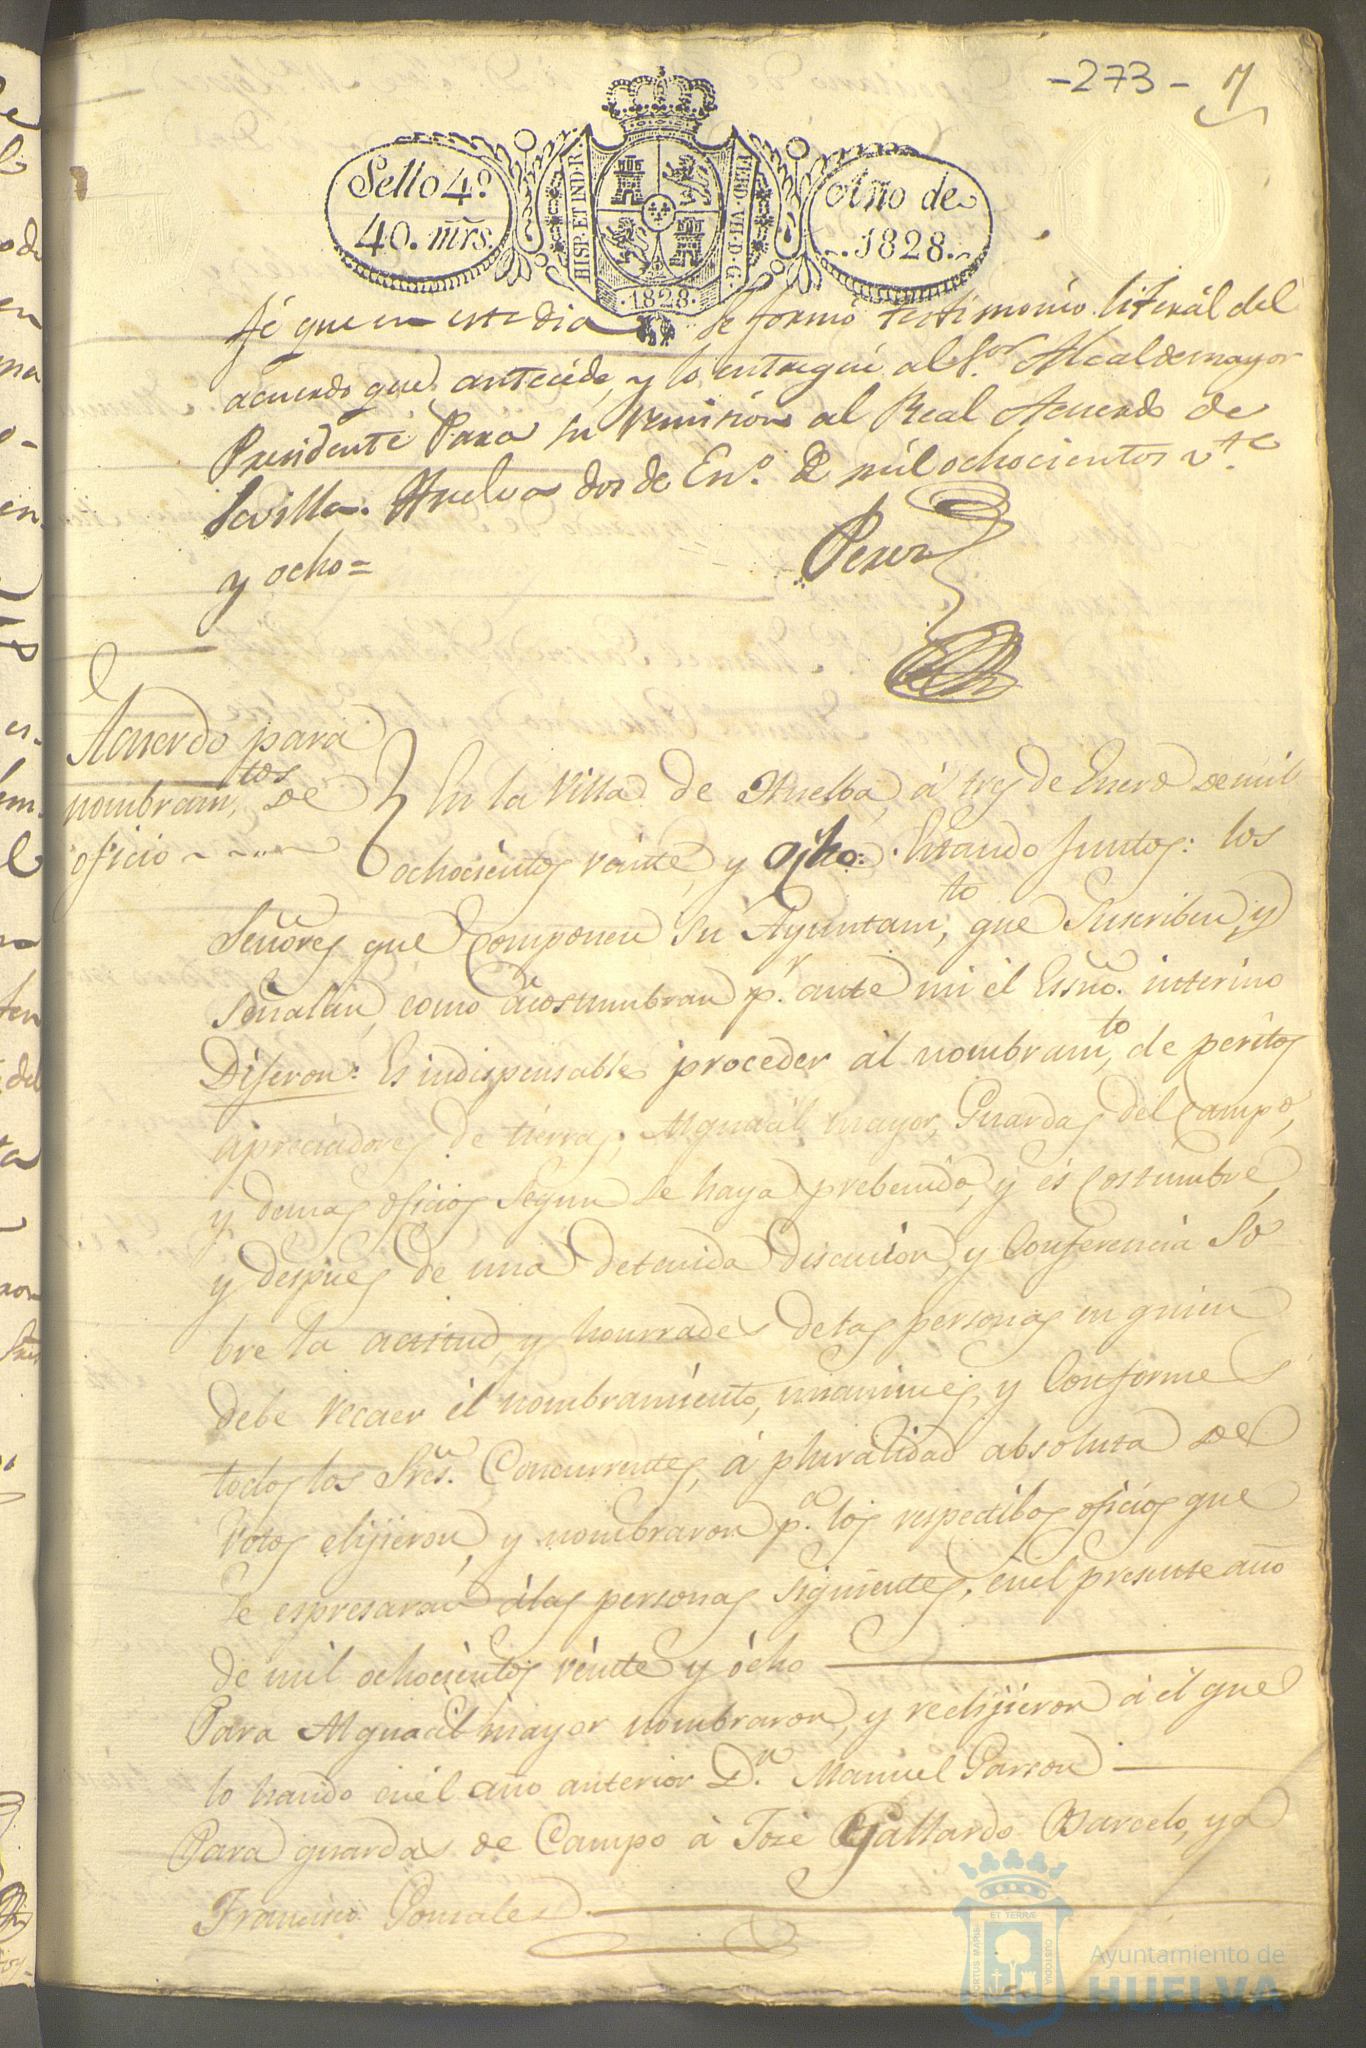 -273- 7
Sello 4.º
40. mrs.
HISP. ET IND. R.
FERD. VII. D. G.
1828.
Año de
1828.
fé que en este dia se formó testimónio literál del
acuerdo que antecede, y lo entregué al S.or Alcalde mayor
Presidente Para su remision al Real Acuerdo de
Sevilla. Huelva dos de En.º de mil ochocientos v.te
y ocho =
Perez
Acuerdo para
nombram.tos de
oficio
En la Villa de Huelba, á tres de Enero de mil
ochocientos veinte, y ojho: Estando Juntos: los
Señores que componen su Ayuntam.to que Suscriben, y
Señalan, como acostumbran p.r ante mi el Essño. interino
Dijeron: Es indispensable proceder ál nombram.to de peritos
apreciadores de tierras, Alguacil mayor, Guardas del Campo,
y demas oficios segun se haya prebenido, y és costumbre,
y despues de una detenida discucion, y Conferencia So
bre la actitud, y honrrades de las personas en quien
debe recaer el nombramiento, unanimes, y Conformes
todos los Sres. Concurrentes, á pluralidad absoluta de
Votos elijieron, y nombraron p.a los respectibos oficios que
se espresaran á las personas siguientes. en el presente año
de mil ochocientos veinte y ócho
Para Alguacil mayor nombraron, y reelijieron á él que
lo hando en él año anterior D.n Manuel Garzon
Para guardas de Campo á José Gallardo Barcelo, y á
Francisco Gonzales
PORTUS MARIS ET TERRÆ CUSTODIA
Ayuntamiento de
HUELVA